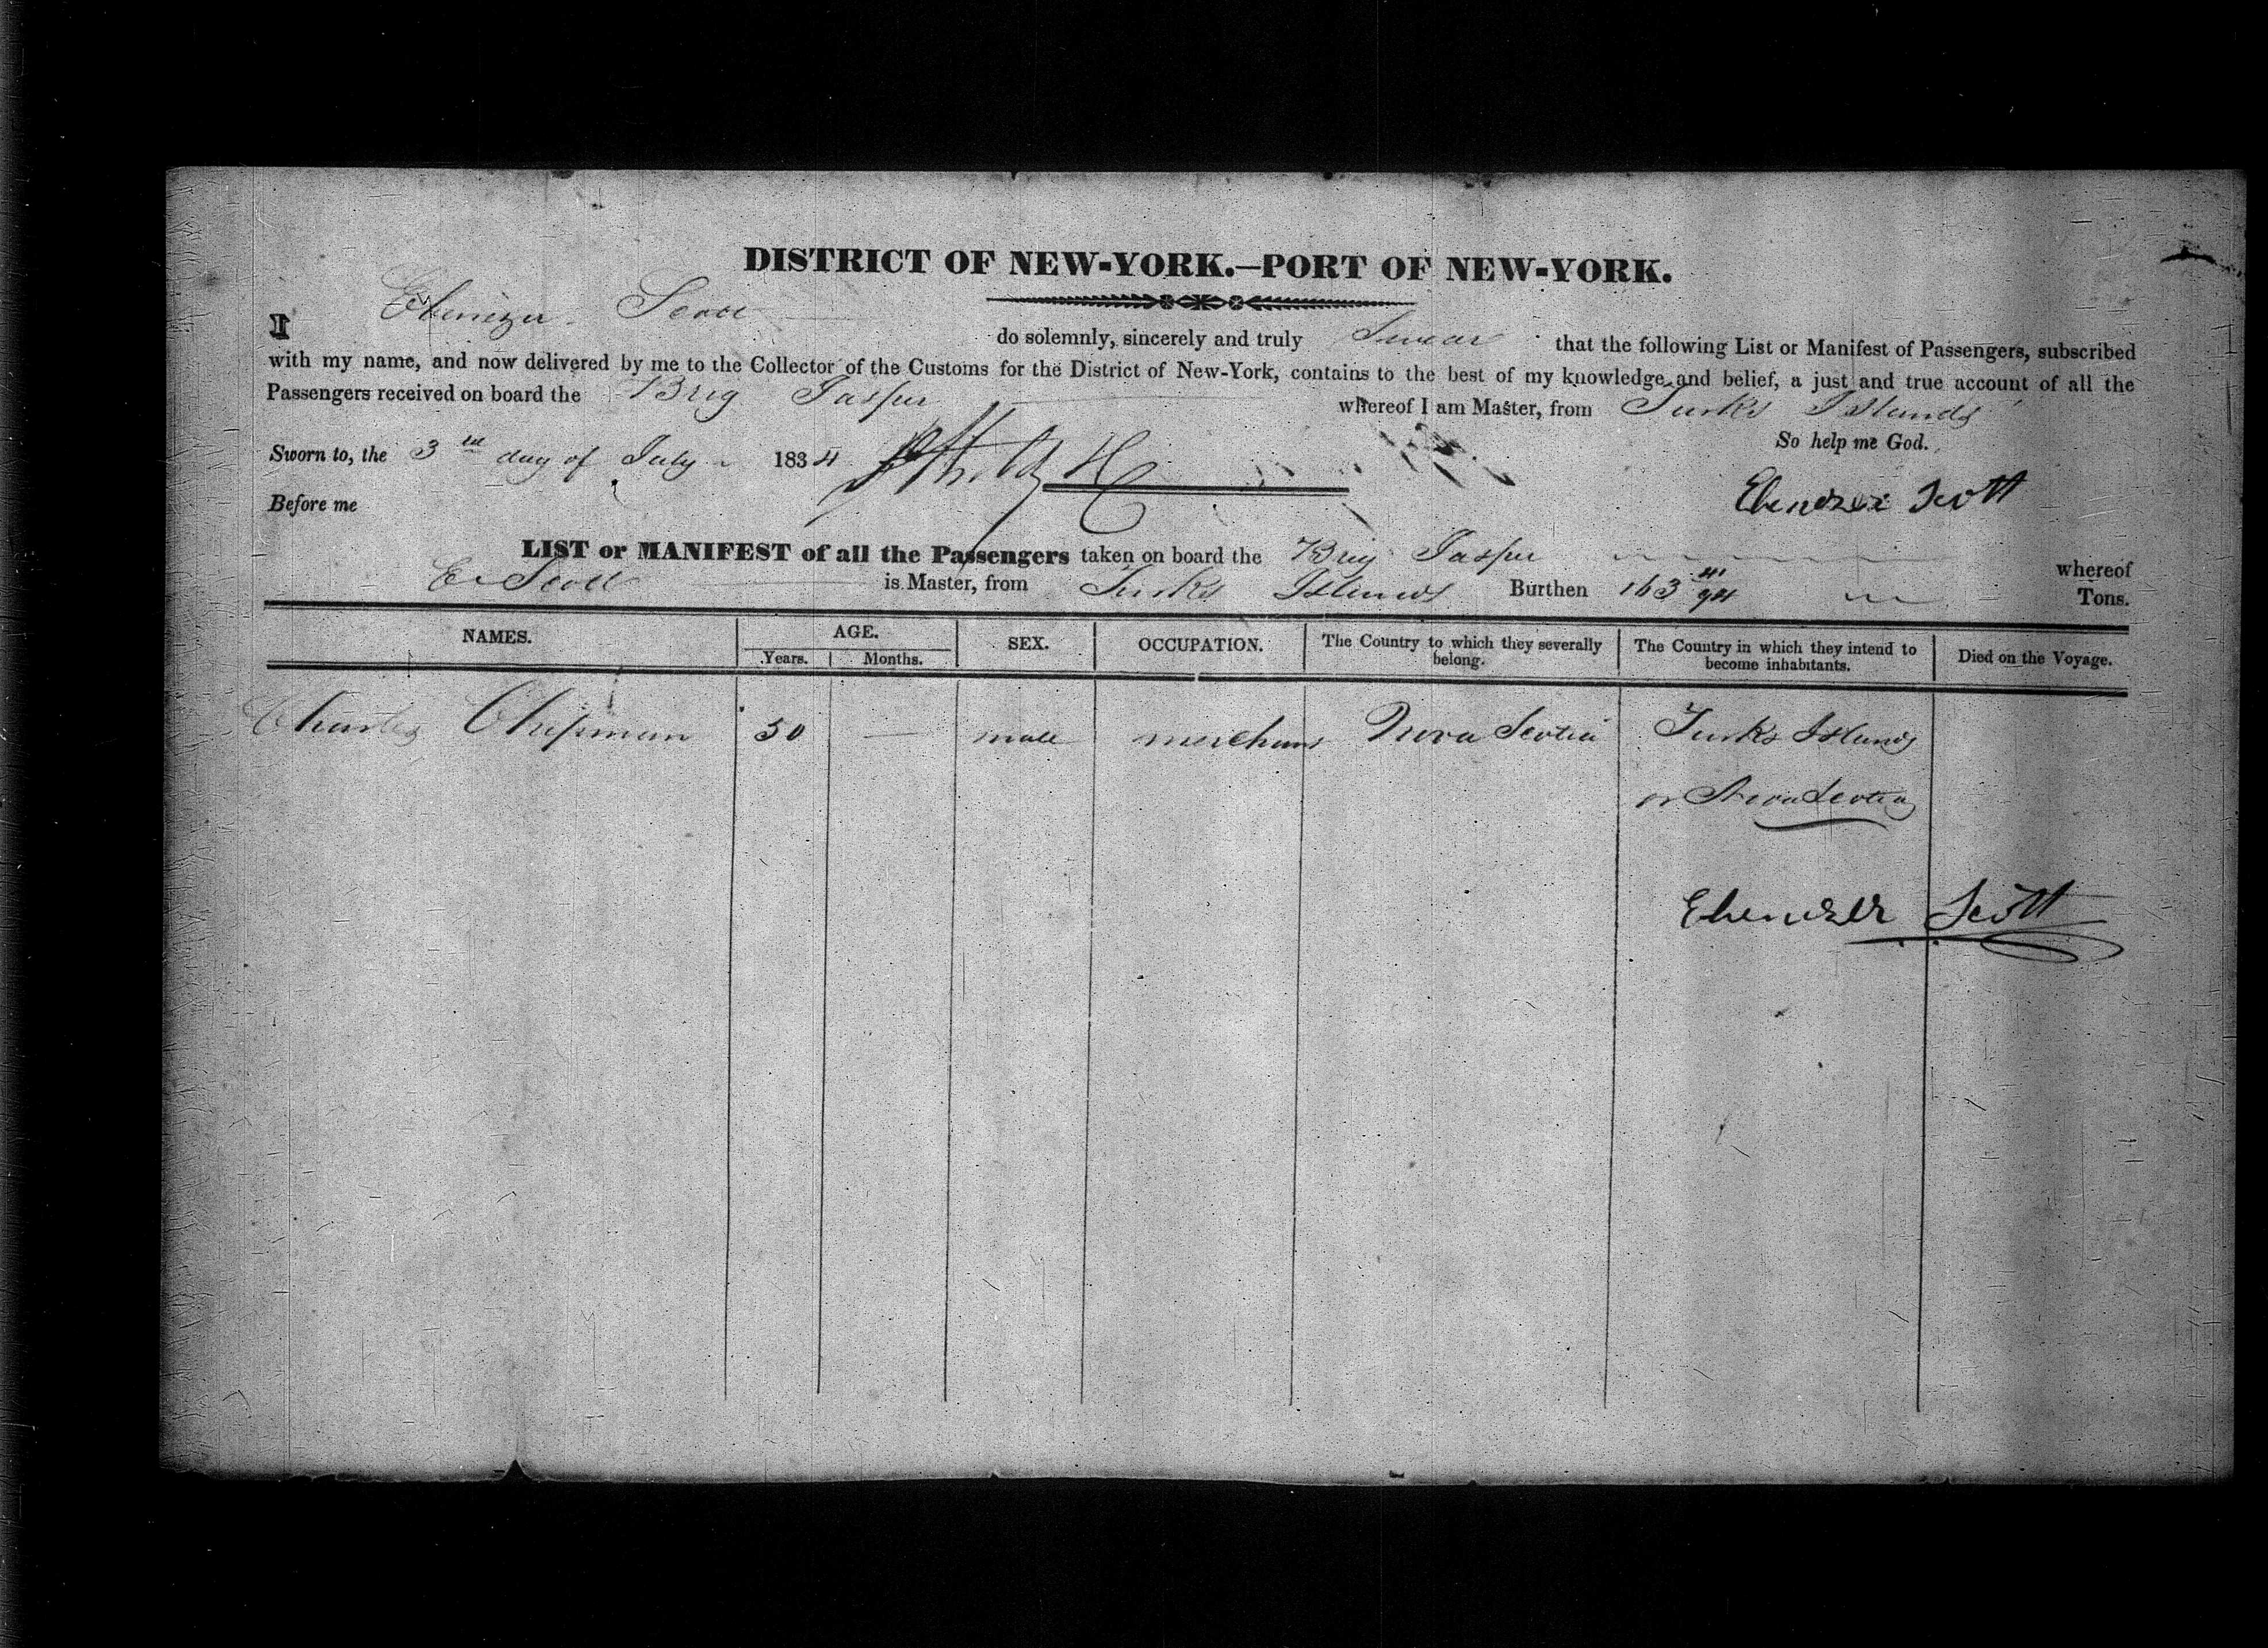 DISTRICT OF NEW-YORK.—PORT OF NEW-YORK.
I Ebenezer Scott do solemnly, sincerely and truly Swear that the following List or Manifest of Passengers, subscribed
with my name, and now delivered by me to the Collector of the Customs for the District of New-York, contains to the best of my knowledge and belief, a just and true account of all the
Passengers received on board the Brig Jasper whereof I am Master, from Turks Islands
So help me God.
Sworn to, the 3rd day of July 1834
Ebenezer Scott
Before me
LIST or MANIFEST of all the Passengers taken on board the Brig Jasper whereof
E Scott is Master, from Turks Islands Burthen 163 Tons.
NAMES. AGE. Years. Months. SEX. OCCUPATION. The Country to which they severally belong. The Country in which they intend to become inhabitants. Died on the Voyage.
Charles Chipman 50 — male merchant Nova Scotia Turks Islands
or Nova Scotia
Ebenezer Scott